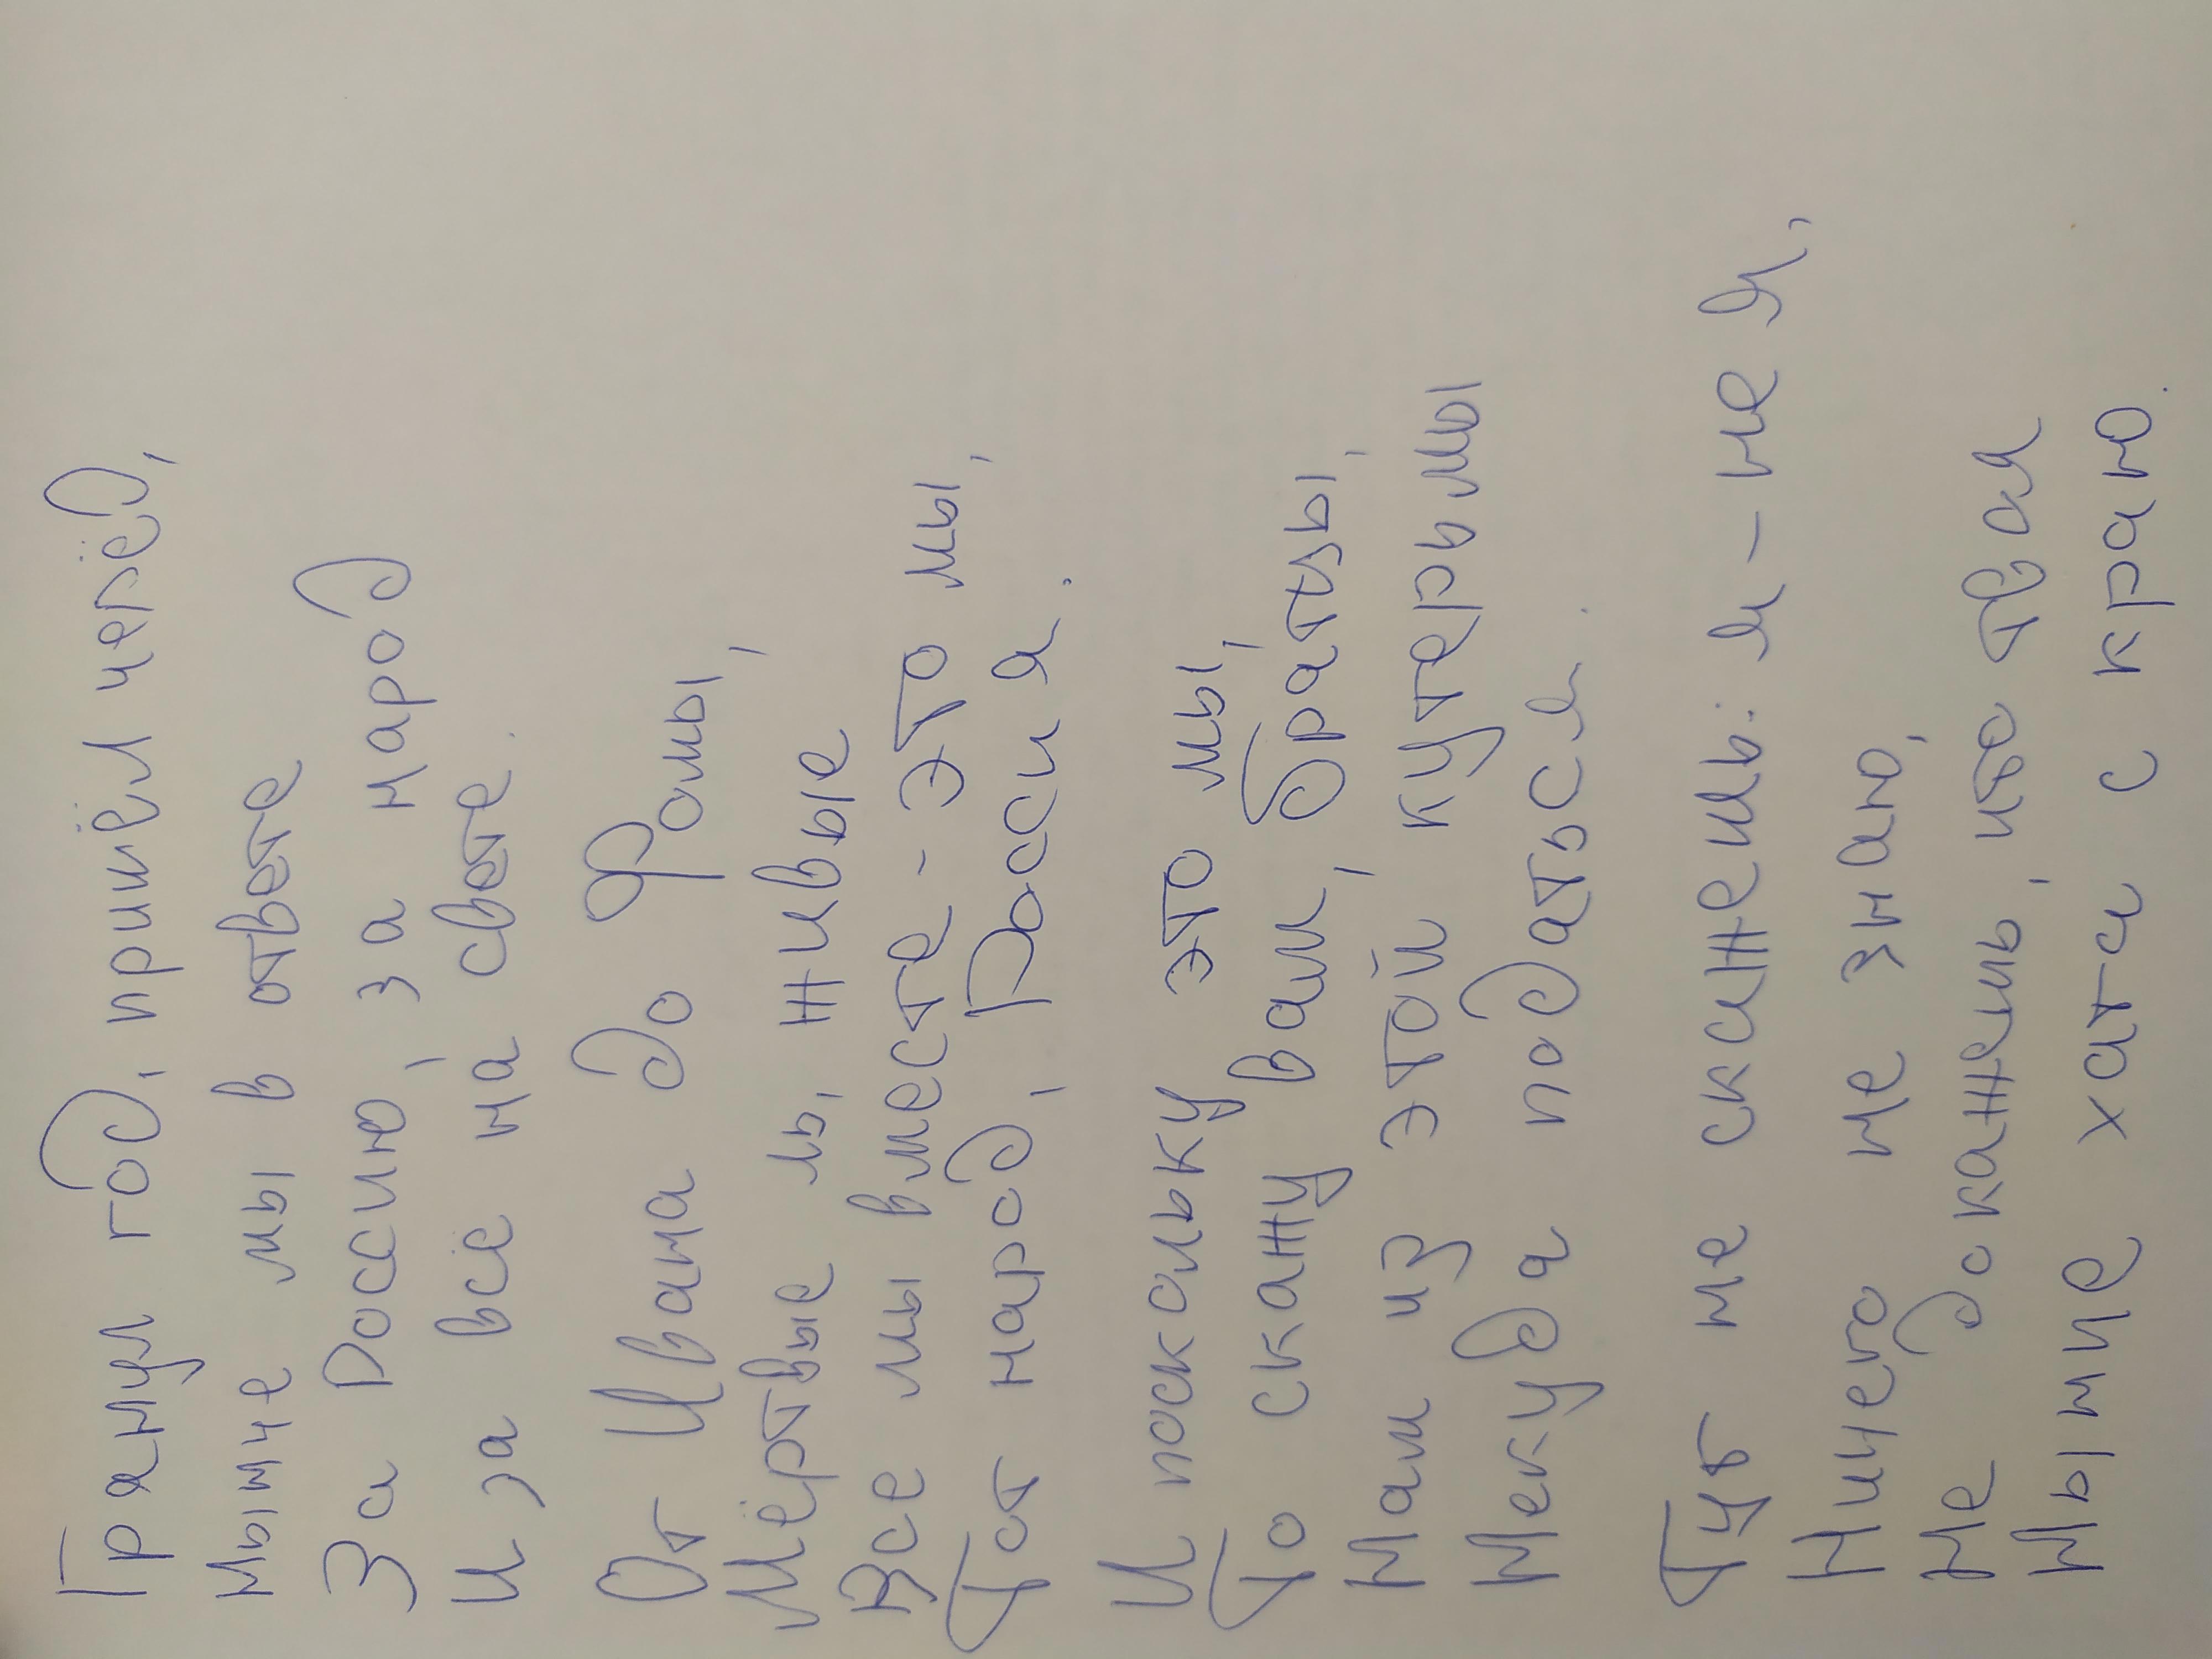 Грянул год, пришёл черёд,
Нынче мы в ответе
За Россию, за народ
И за всё на свете.
От Ивана до Фомы,
Мёртвые ль, живые
Все мы вместе - это мы,
Тот народ, Россия.
И поскольку это мы,
То скажу вам, братья,
Нам из этой кутерьмы
Некуда податься.
Тут не скажешь: я - не я,
Ничего не знаю,
Не докажешь, что твоя
Нынче хата с краю.